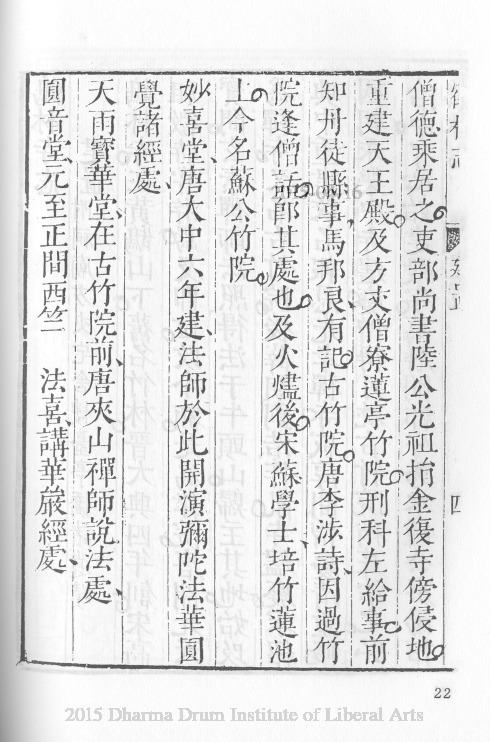 僧德乘居之吏部尚書陸公光祖捐金復寺傍侵地
重建天王殿及方丈僧寮蓮亭竹院刑科左給事前
知丹徒縣事馬邦良有記古竹院唐李涉詩因過竹
院逢僧話卽其處也及火燼後宋蘇學士培竹蓮池
上今名蘇公竹院
妙喜堂唐大中六年建法師於此開演彌陀法華圓
覺諸經處
天雨寶華堂在古竹院前唐夾山禪師說法處
圓音堂元至正間西竺　法喜講華嚴經處
22
2015 Dharma Drum Institute of Liberal Arts